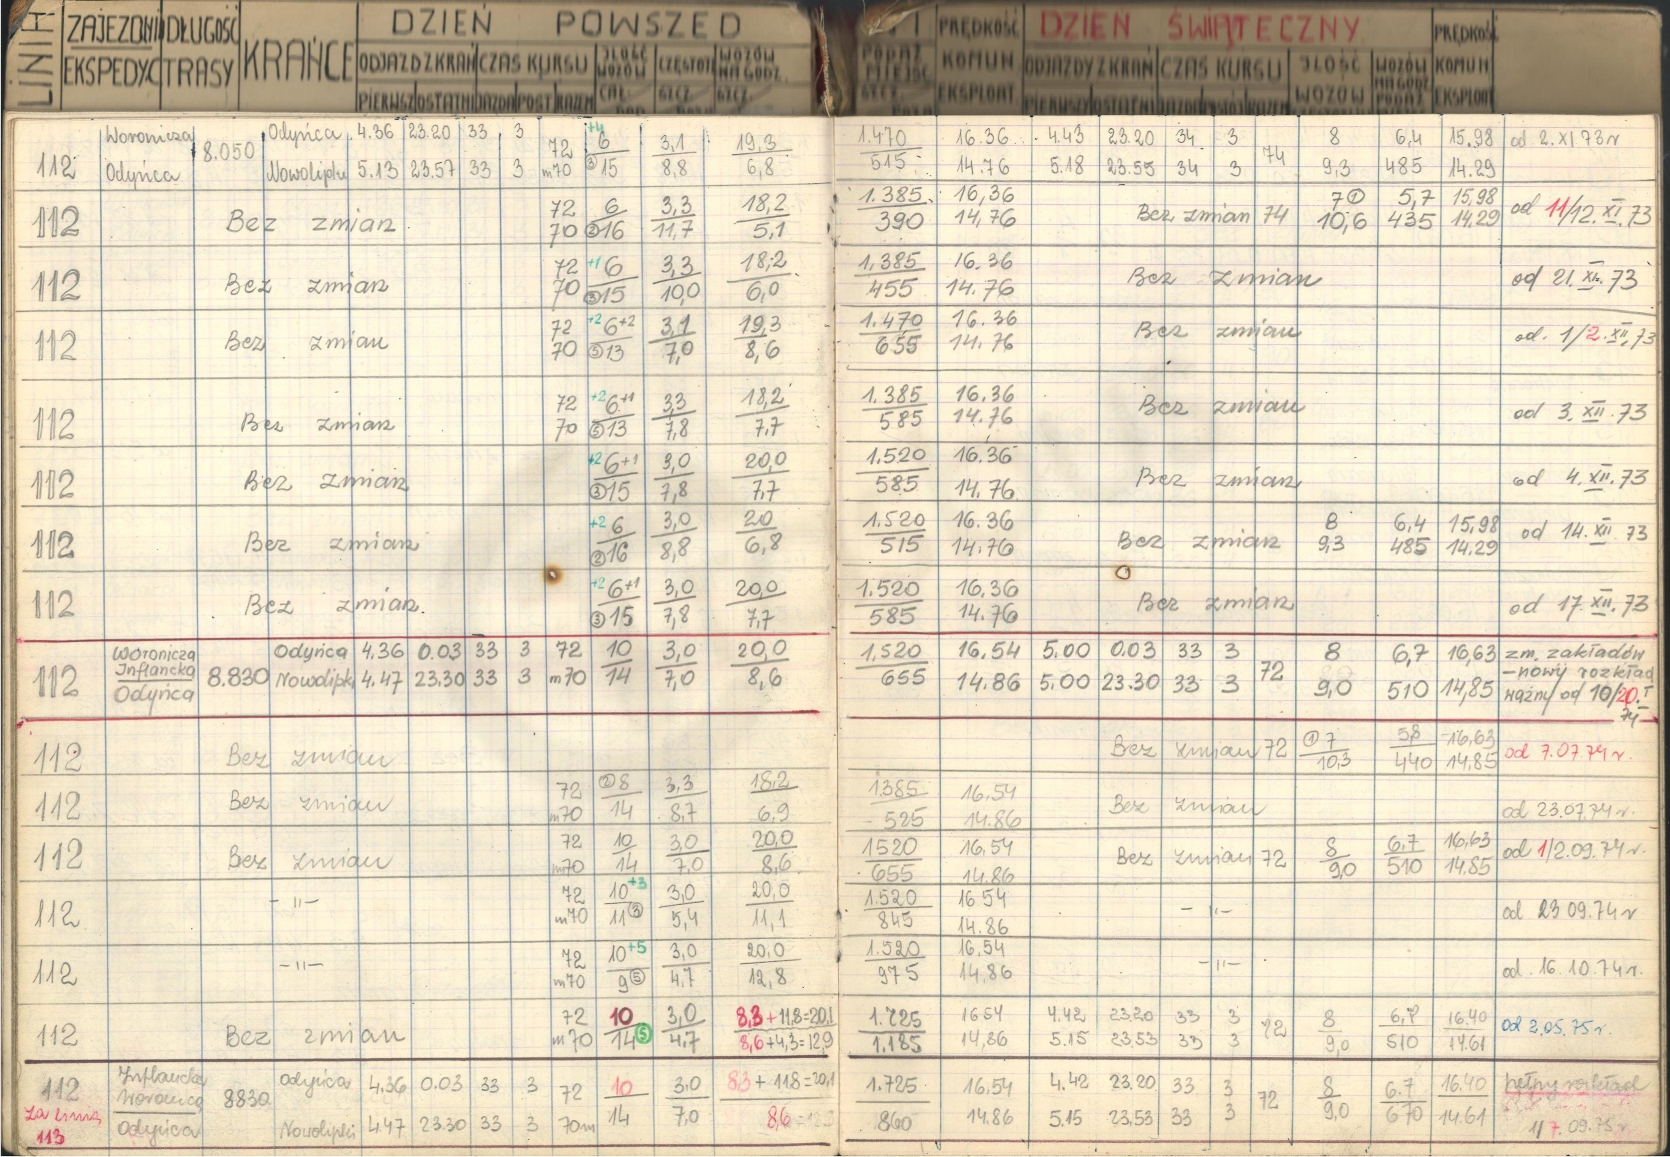 LINIA ZAJEZDNI DŁUGOŚĆ KRAŃCE DZIEŃ POWSZED PRĘDKOŚĆ DZIEŃ ŚWIĄTECZNY PRĘDKOŚĆ
EKSPEDYC TRASY ODJAZD Z KRAŃ CZAS KURSU ILOŚĆ WOZÓW CZĘSTOT WOZÓW NA GODZ. PODAŻ MIEJSC KOMUN EKSPLOAT. ODJAZDY Z KRAŃ CZAS KURSU ILOŚĆ WOZÓW WOZÓW NA GODZ PODAŻ KOMUN EKSPLOAT
PIERWSZ OSTATNI JAZDA POST. RAZEM PIERWSZ OSTATNI JAZDA RAZEM
Woronicza 8.050 Odyńca 4.36 23.20 33 3 72 +4 6 3,1 19,3 1.470 16.36 4.43 23.20 34 3 74 8 6,4 15,98 od 2.XI.73r
112 Odyńca Nowolipki 5.13 23.57 33 3 m70 ③15 8,8 6,8 515 14.76 5.18 23.55 34 3 9,3 485 14.29
112 Bez zmian 72 6 3,3 18,2 1.385 16,36 Bez zmian 74 7① 5,7 15,98 od 11/12.XI.73
70 ②16 11,7 5,1 390 14,76 10,6 435 14,29
112 Bez zmian 72 +1 6 3,3 18,2 1.385 16.36 Bez zmian od 21.XI.73
70 ③15 10,0 6,0 455 14.76
112 Bez zmian 72 +2 6+2 3,1 19,3 1.470 16.36 Bez zmian od. 1/2.XII.73
70 ⑤13 7,0 8,6 655 14.76
112 Bez zmian 72 +2 6+1 3,3 18,2 1.385 16.36 Bez zmian od 3.XII.73
70 ⑤13 7,8 7,7 585 14.76
112 Bez zmian +2 6+1 3,0 20,0 1.520 16.36 Bez zmian od 4.XII.73
③15 7,8 7,7 585 14.76
112 Bez zmian +2 6 3,0 20 1.520 16.36 Bez zmian 8 6,4 15,98 od 14.XII.73
②16 8,8 6,8 515 14.76 9,3 485 14.29
112 Bez zmian. +2 6+1 3,0 20,0 1.520 16,36 Bez zmian od 17.XII.73
③15 7,8 7,7 585 14.76
112 Woronicza Inflancka Odyńca 8.830 Odyńca 4.36 0.03 33 3 72 10 3,0 20,0 1.520 16,54 5.00 0.03 33 3 72 8 6,7 16,63 zm. zakładów
Nowolipk 4.47 23.30 33 3 m70 14 7,0 8,6 655 14.86 5.00 23.30 33 3 9,0 510 14,85 -nowy rozkład ważny od 10/20.I 74
112 Bez zmian Bez zmian 72 ①7 5,8 16,63 od 7.07.74r.
10,3 440 14,85
112 Bez zmian 72 ②8 3,3 18,2 1385 16,54 Bez zmian od 23.07.74r.
m70 14 8,7 6,9 525 14.86
112 Bez zmian 72 10 3,0 20,0 1520 16,54 Bez zmian 72 8 6,7 16,63 od 1/2.09.74r.
m70 14 7,0 8,6 655 14.86 9,0 510 14,85
112 -"- 72 10+3 3,0 20,0 1.520 16 54 -"- od 23 09.74r
m70 11③ 5,4 11,1 845 14.86
112 -"- 72 10+5 3,0 20,0 1.520 16,54 -"- od. 16.10.74r.
m70 9⑤ 4,7 12,8 975 14,86
112 Bez zmian 72 10 3,0 8,3+11,8=20,1 1.725 16 54 4.42 23.20 33 3 72 8 6,7 16.40 od 2.05.75r.
m70 14⑤ 4,7 8,6+4,3=12,9 1.185 14,86 5.15 23.53 33 3 9,0 510 14.61
112 Inflancka Woronicza 8830 Odyńca 4.36 0.03 33 3 72 10 3,0 8,3+11,8=20,1 1.725 16,54 4.42 23.20 33 3 72 8 6.7 16.40 pełny rozkład
za linią 113 Odyńca Nowolipki 4.47 23.30 33 3 70m 14 7,0 8,6 860 14.86 5.15 23,53 33 3 9,0 670 14.61 1/7.09.75r